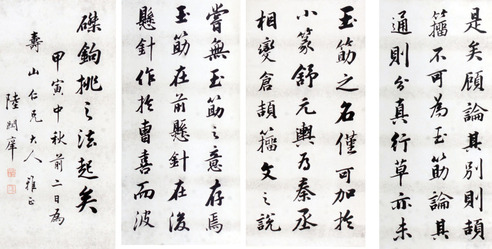 是矣顧論其別則頡
籀不可為玉筯論其
通則分真行草亦未
玉筯之名僅可加於
小篆舒元輿為秦丞
相變倉頡籀文之說
嘗無玉筯之意存焉
玉筯在前懸針在後
懸針作於曹喜而波
磔鉤挑之法起矣
甲寅中秋前二日為
壽山仁兄大人雅正
陸潤庠